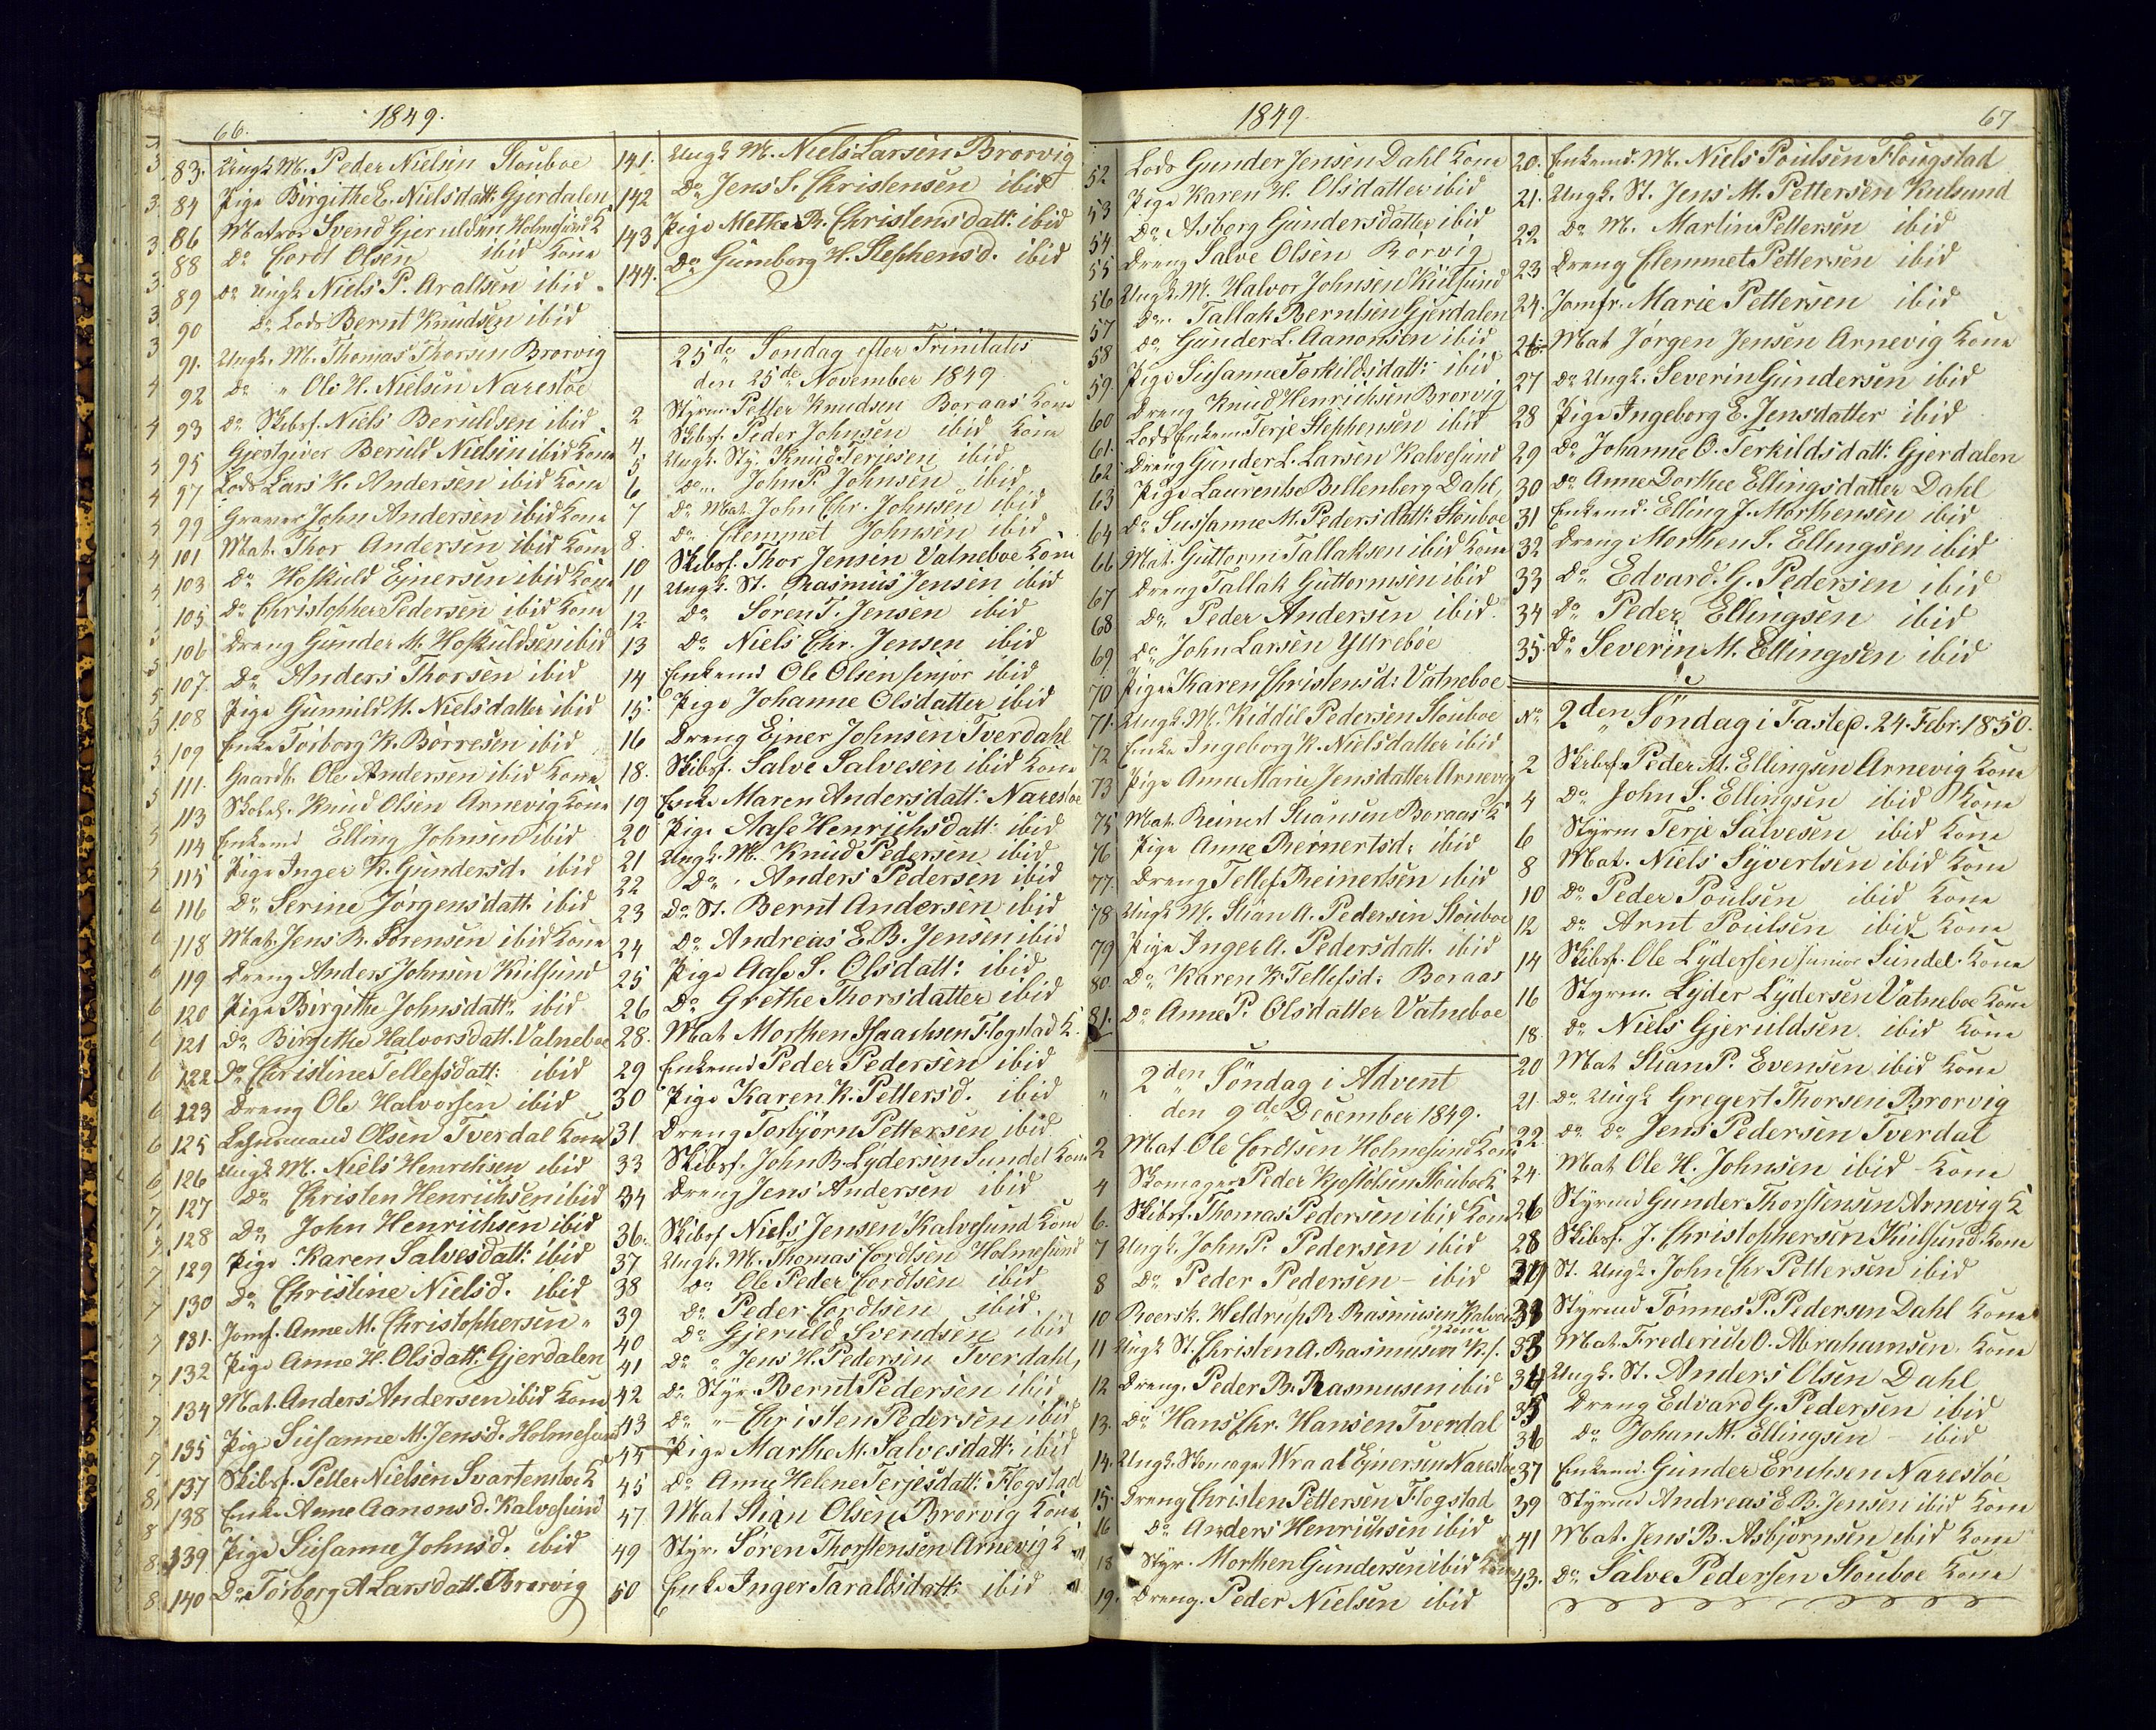 66.
1849.
83. Ungk. M. Peder Nielsen Stouboe
84 Pige Birgithe E. Nielsdatt. Gjerdalen
86 Matros Svend Gjeruldsen Holmesund K
88 Do Cordt Olsen ibid Kone
89 Do Ungk Niels P. Araltsen ibid.
90 Do Lods Bernt Knudsen ibid
91. Ungk. M. Thomas Thorsen Brorvig
92 Do " Ole H. Nielsen Narestöe
93 Do Skibsf. Niels Beruldsen ibid
95 Gjestgiver Beruld Nielsen ibid Kone
97 Lods Lars K. Andersen ibid Kone
99 Graver John Andersen ibid Kone
101 Mat. Thor Andersen ibid Kone
103 Do Hoskuld Ejnersen ibid Kone
105 Do Christopher Pedersen ibid Kone
106 Dreng Gunder M. Hoskuldsen ibid
107. Do Anders Thorsen ibid
108 Pige Gunnild M. Nielsdatter ibid
109 Enke Torborg K. Börresen ibid
111. Gaardb. Ole Andersen ibid Kone
113 Skoleh. Knud Olsen Arnevig Kone
114 Enkemd Elling Johnsen ibid
115 Pige Inger K. Gundersd. ibid
116 Do Serine Jörgensdatt. ibid
118 Mat. Jens B. Sörensen ibid Kone
119 Dreng Anders Johnsen Kiilsund
120 Pige Birgithe Johnsdatt: ibid
121 Do Birgithe Halvorsdatt. Vatneboe
122 Do Christine Tellefsdatt: ibid
123 Dreng Ole Halvorsen ibid
125 Lehnsmand Olsen Tverdal Kone
126 Ungk M. Niels Henrichsen ibid
127 Do Christen Henrichsen ibid
128 Do John Henrichsen ibid
129 Pige Karen Salvesdatt: ibid
130 Do Christine Nielsd. ibid
131. Jomf. Anne M. Christophersen "
132 Pige Anne H. Olsdatt: Gjerdalen
134 Mat. Anders Andersen ibid Kone
135 Pige Susanne M. Jensd. Holmesund
137 Skibsf. Petter Nielsen Svartenstoe K
138 Enke Anne Aanonsd. Kalvesund
139 Pige Susanne Johnsd. ibid
140 Do Torborg A Larsdatt. Brorvig
141. Ungk M. Niels Larsen Brorvig
142 Do Jens S. Christensen ibid
143 Pige Methe B. Christensdatt: ibid
144. Do Gunborg H. Stephensd. ibid
25de Sondag efter Trinitatis
den 25de November 1849
2 Styrm Petter Knudsen Boraas Kone
4. Skibsf. Peder Johnsen ibid Kone
5 Ungk. Sty. Knud Terjesen ibid
6 Do " John P. Johnsen ibid
7 Do Mat. John Chr. Johnsen ibid
8. Do Clemmet Johnsen ibid
10 Skibsf. Thor Jensen Vatneboe Kone
11 Ungk. St. Rasmus Jensen ibid
12 Do Sören T. Jensen ibid
13 Do Niels Chr. Jensen ibid
14 Enkemd Ole Olsen senjor ibid
15: Pige Johanne Olsdatter ibid
16 Dreng Ejner Johnsen Tverdahl
18. Skibsf. Salve Salvesen ibid Kone
19 Enke Maren Andersdatt: Narestoe
20 Pige Aase Henrichsdatt: ibid
21 Ungk. M. Knud Pedersen ibid
22 Do " Anders Pedersen ibid
23 Do St. Bernt Andersen ibid
24 Do Andreas E. B. Jensen ibid
25 Pige Aase S. Olsdatt: ibid
26 Do Grethe Thorsdatter ibid
28. Mat Morthen Isaachsen Flogstad K.
29 Enkemd Peder Pedersen ibid
30 Pige Karen K. Pettersd. ibid
31 Dreng Torbjörn Pettersen ibid
33 Skibsf. John B. Lydersen Sundet Kone
34 Dreng Jens Andersen ibid
36. Skibsf Niels Jensen Kalvesund Kone
37 Ungk. M. Thomas Cordtsen Holmesund
38 Do Ole Peder Cordtsen ibid
39 Do Peder Cordtsen ibid.
40 Do Gjeruld Svendsen ibid
41 Do " Jens H. Pedersen Tverdahl,
42 Do Styr. Bernt Pedersen ibid
43 Do " Christen Pedersen ibid
44 Pige Marthe M. Salvesdatt: ibid
45 Do Anne Helene Terjesdatt: Flogstad
47 Mat Stian Olsen Brorvig Kone
49 Styr. Sören Thorstensen Arnevig K
50 Enke Inger Taraldsdatt: ibid
1849.
67
52 Lods Gunder Jensen Dahl Kone
53 Pige Karen K. Olsdatter ibid
54 Do Asborg Gundersdatter ibid
55 Dreng Salve Olsen Rörvig
56 Ungk. M. Halvor Johnsen Kiilsund
57 Do " Tallak Berntsen Gjerdalen
58 Do Gunder L. Aanonsen ibid
59. Pige Susanne Torkildsdatt: ibid
60 Dreng Knud Henrichsen Brorvig
61. Lods Enkem Terje Stephensen ibid
62 Dreng Gunder L. Larsen Kalvesund
63 Pige Laurentse Bullenberg Dahl,
64 Do Susanne M. Pedersdatt: Stouboe
66 Mat. Guttorm Tallaksen ibid Kone
67 Dreng Tallak Guttormsen ibid
68 Do Peder Andersen ibid.
69. Do John Larsen Yttreboe
70 Pige Karen Christensd: Vatneboe
71. Ungk. M. Kiddil Pedersen Stouboe
72 Enke Ingeborg K. Nielsdatter ibid
73 Pige Anne Marie Jensdatter Arnevig
75 Mat. Reinert Stiansen Boraas K
76 Pige Anne Reinertsd: ibid
77. Dreng Tellef Reinertsen ibid
78 Ungk M. Stian A. Pedersen Stouboe
79 Pige Inger A. Pedersdatt. ibid
80. Do Karen K. Tellefsd: Boraas
81. Do Anne P. Olsdatter Vatneboe
2den Söndag i Advent
den 9de December 1849.
2 Mat Ole Cordtsen Holmesund Kone
4 Skomager Peder Kjostolsen Stuboe K
6. Skibsf. Thomas Pedersen ibid Kone
7 Ungk. John P. Pedersen ibid
8 Do Peder Pedersen - ibid
10 Roersk. Weldrup R Rasmusen Kalvesund
og Kone
11 Ungk St. Christen A. Rasmusen K.s.
12 Dreng. Peder B. Rasmusen ibid
13. Do Hans Chr. Hansen Tverdal
14. Ungk. Skomager Wraal Ejnersen Narestöe
15. Dreng Christen Pettersen Flogstad
16 Do Anders Henrichsen ibid
18 Styr. Morthen Gundersen ibid Kone
19. Dreng. Peder Nielsen ibid
20. Enkemd. M. Niels Poulsen Flougstad
21. Ungk. St. Jens M. Pettersen Kiilsund
22 Do M. Martin Pettersen ibid
23 Dreng Clemmet Pettersen ibid
24. Jomfr. Marie Pettersen ibid
26. Mat Jørgen Jensen Arnevig Kone
27 Do Ungk. Severin Gundersen ibid
28 Pige Ingeborg E. Jensdatter ibid
29 Do Johanne O. Terkildsdatt: Gjerdalen
30 Do Anne Dorthee Ellingsdatter Dahl
31 Enkemd. Elling J. Morthensen ibid
32 Dreng Morthen S. Ellingsen ibid
33 Do Edvard G. Pedersen ibid
34 Do Peder Ellingsen ibid
35. Do Severin M. Ellingsen ibid
No 2den Söndag i Faste. 24. Febr. 1850.
2 Skibsf. Peder M. Ellingsen Arnevig Kone
4 Do John S. Ellingsen ibid Kone
6 Styrm Terje Salvesen ibid Kone
8 Mat. Niels Syvertsen ibid Kone
10 Do Peder Poulsen ibid Kone
12 Do Arnt Poulsen ibid Kone
14 Skibsf. Ole Lydersen junior Sundet. Kone
16 Styrm. Lyder Lydersen Vatneboe Kone
18. Do Niels Gjeruldsen ibid Kone
20 Mat Stian P. Evensen ibid Kone
21. Do Ungk Gregert Thorsen Brorvig
22. Do Do Jens Pedersen Tverdal
24. Mat Ole H. Johnsen ibid - Kone
26 Styrmd Gunder Thorstensen Arnevig K
28 Skibsf. J. Christophersen Kiilsund Kone
29 St. Ungk. John Chr Pettersen ibid
31 Styrmd Tönnes P. Pedersen Dahl Kone
33 Mat. Frederich O. Abrahamsen. Kone
34 Ungk. St. Anders Olsen Dahl
35 Dreng Edvard G. Pedersen ibid
36 Do Johan M. Ellingsen - ibid
37 Enkemd. Gunder Erichsen Narestöe
39 Styrmd Andreas E. B. Jensen ibid Kone
41 Mat. Jens B. Asbjörnsen ibid Kone
43. Do Salve Pedersen Stouboe Kone